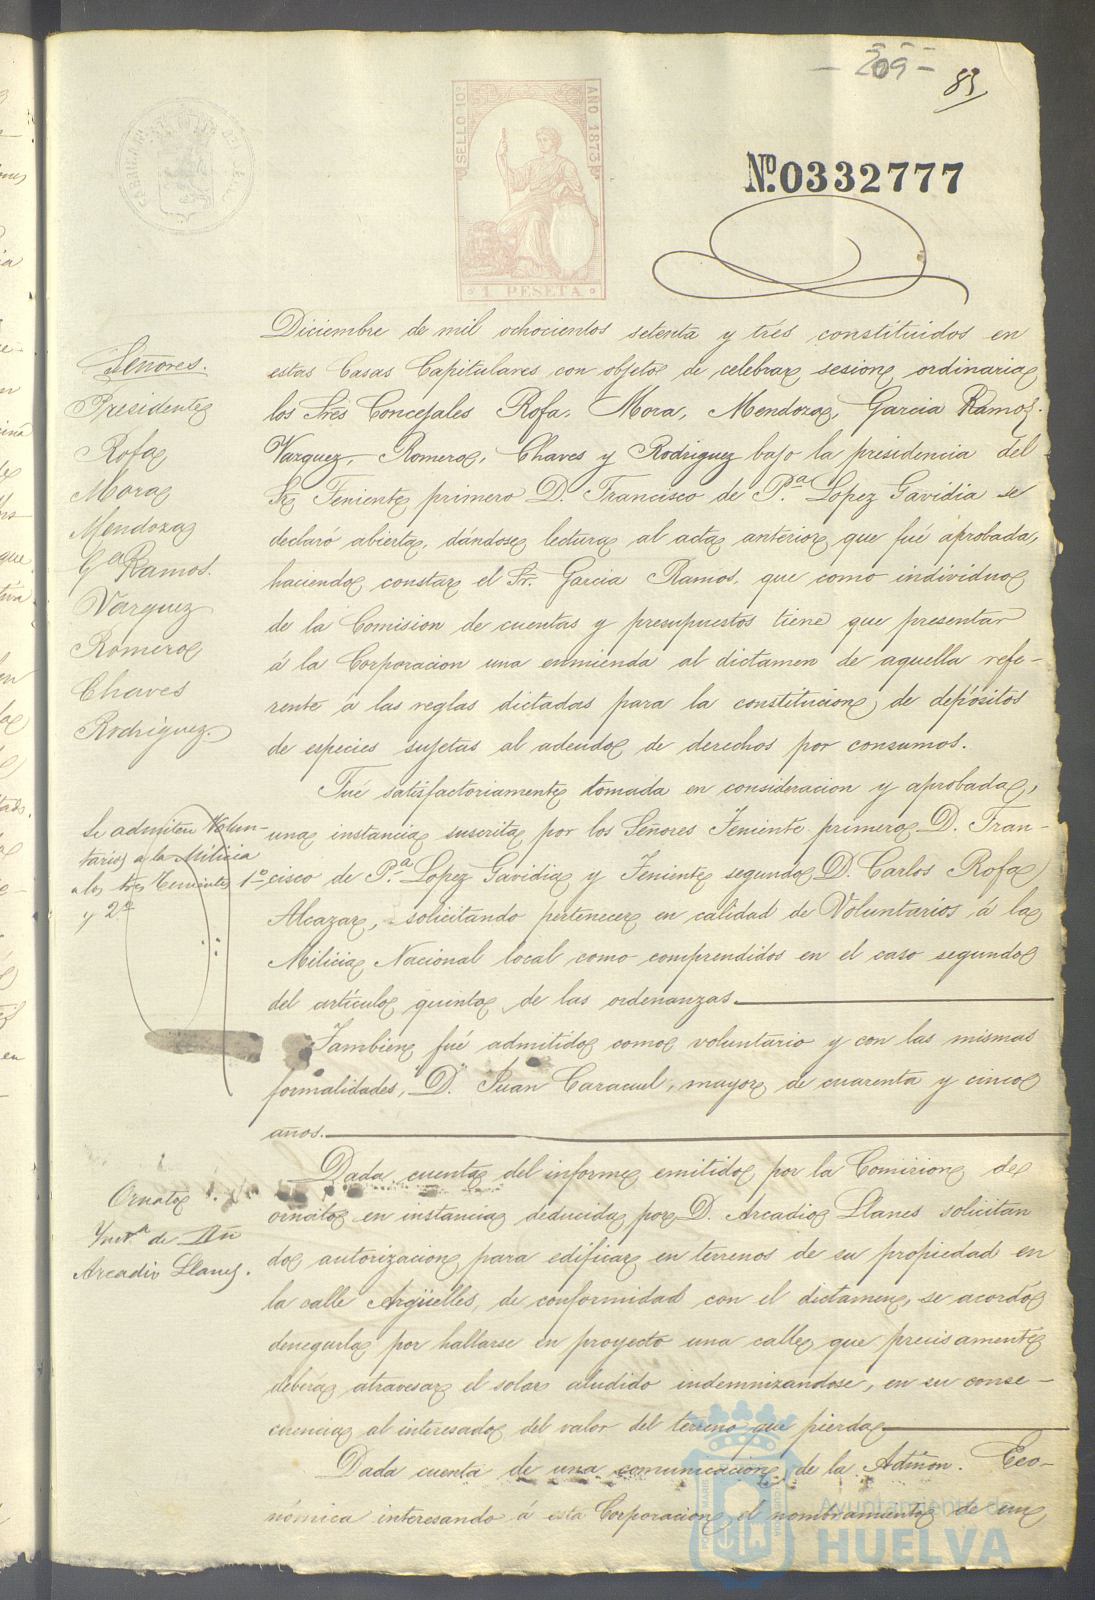 - 209 -
83
SELLO 10º
AÑO 1873
1 PESETA
Nº 0332777
Señores.
Presidente
Rofa
Mora
Mendoza
Gª Ramos.
Vazquez
Romero
Chaves
Rodriguez.
Diciembre de mil ochocientos setenta y trés constituidos en
estas Casas Capitulares con objeto de celebrar sesion ordinaria
los Sres Concejales Rofa, Mora, Mendoza, Garcia Ramos.
Vazquez, Romero, Chaves y Rodriguez bajo la presidencia del
Sr Teniente primero D. Francisco de P.ª Lopez Gavidia se
declaró abierta, dándose lectura al acta anterior que fué aprobada,
haciendo constar el Sr. Garcia Ramos, que como individuo
de la Comision de cuentas y presupuestos tiene que presentar
á la Corporacion una enmienda al dictamen de aquella refe-
rente á las reglas dictadas para la constitucion de depósitos
de especies sujetas al adeudo de derechos por consumos.
Fué satisfactoriamente tomada en consideracion y aprobada,
Se admiten Volun-
tarios a la Milicia
a los tres Tenientes 1º
y 2º
una instancia suscrita por los Señores Teniente primero D. Fran-
cisco de P.ª Lopez Gavidia y Teniente segundo D. Carlos Rofa
Alcazar, solicitando pertenecer en calidad de Voluntarios á la
Milicia Nacional local como comprendidos en el caso segundo
del artículo quinto de las ordenanzas.
Tambien fué admitido como voluntario y con las mismas
formalidades, D. Juan Caracuel, mayor de cuarenta y cinco
años.
Ornato
Ynstª de Dn
Arcadio Llanes.
Dada cuenta del informe emitido por la Comision de
ornato en instancia deducida por D. Arcadio Llanes solicitan
do autorizacion para edificar en terrenos de su propiedad en
la calle Argüelles, de conformidad con el dictamen, se acordó
denegarla por hallarse en proyecto una calle que precisamente
deberá atravesar el solar aludido indemnizandose, en su conse-
cuencia al interesado del valor del terreno que pierda
Dada cuenta de una comunicacion de la Admon. Eco-
nómica interesando á esta Corporacion el nombramiento de un
Ayuntamiento de
HUELVA